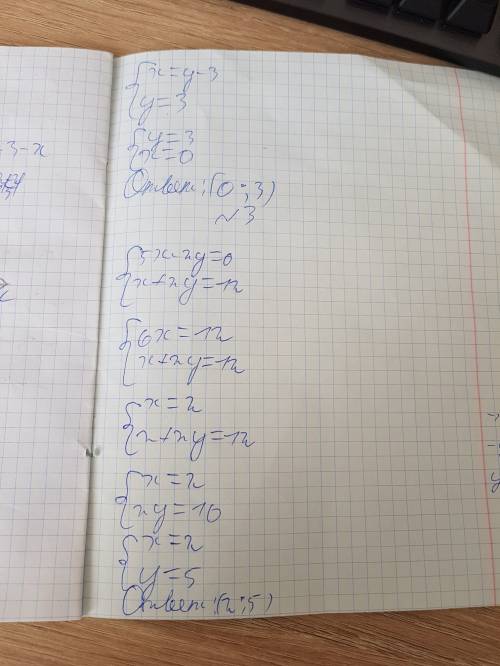 3-x
{x=y-3
{y=3
{y=3
{x=0
Ответ: (0;3)
~3
{5x-2y=0
{x+2y=12
{6x=12
{x+2y=12
{x=2
{x+2y=12
{x=2
{2y=10
{x=2
{y=5
Ответ: (2;5)